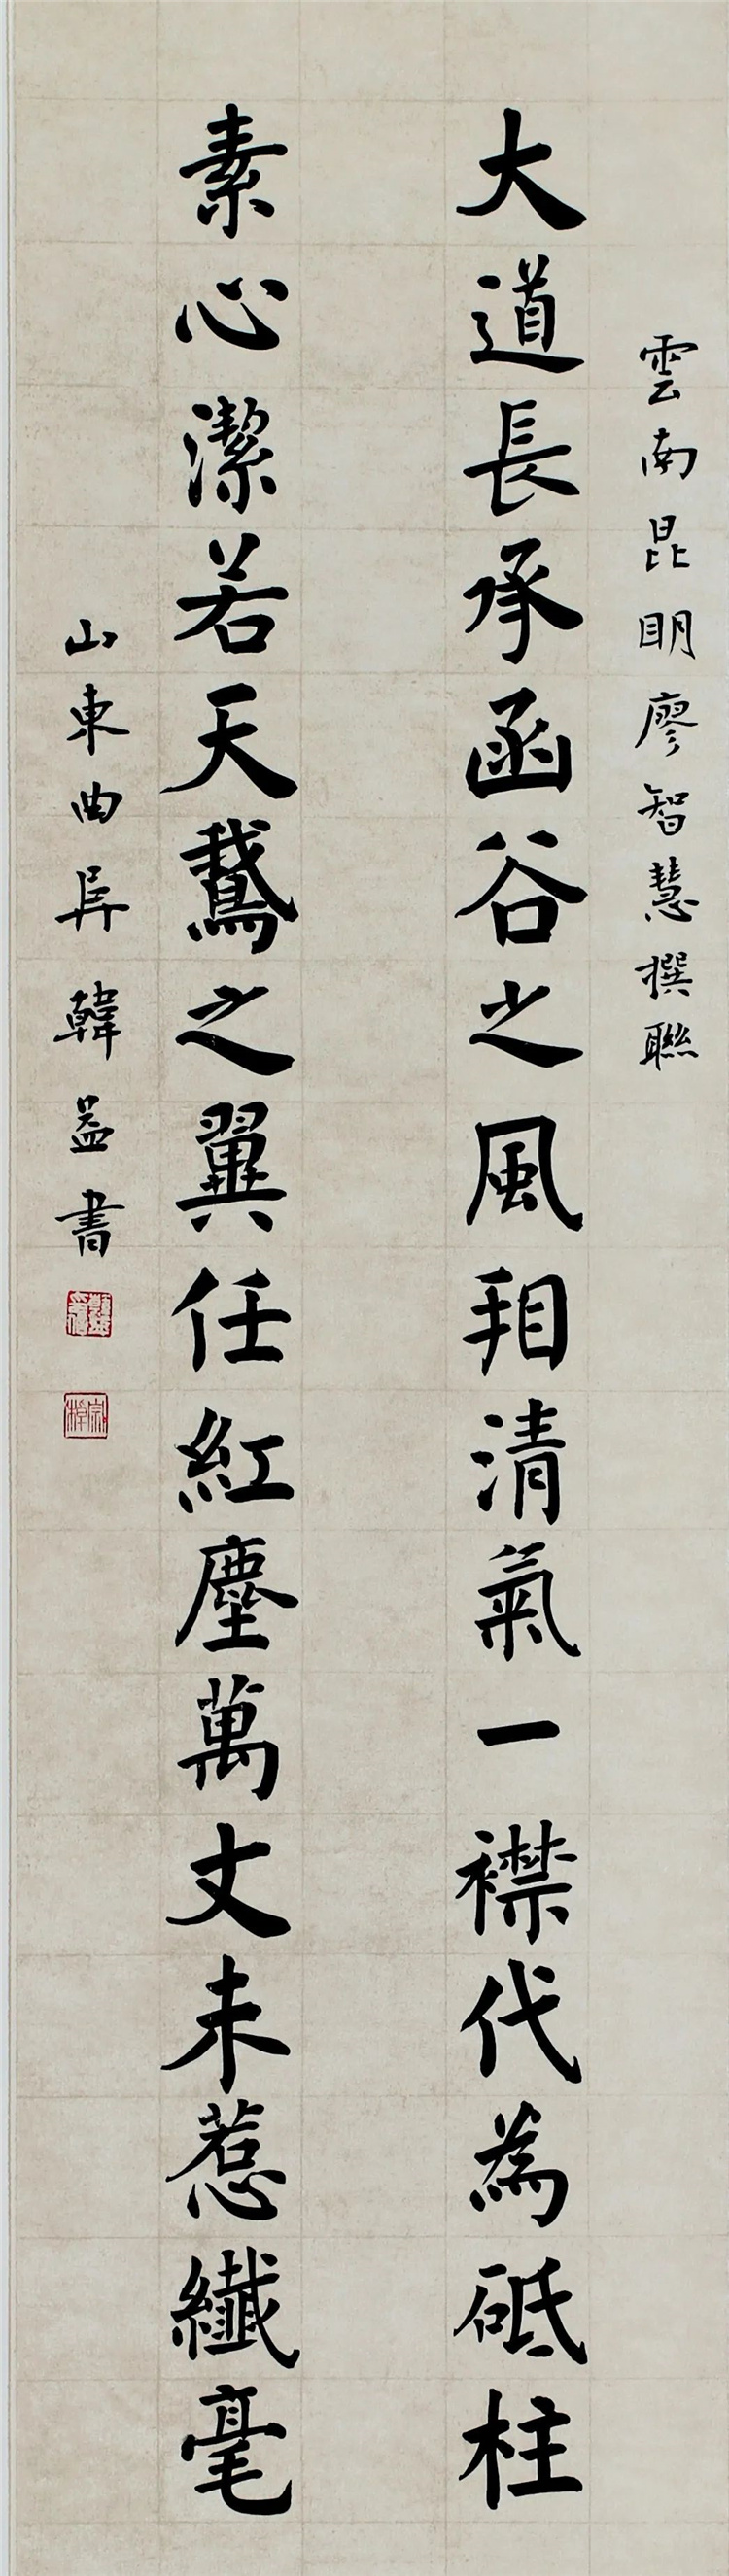 雲南昆眀廖智慧撰聯
大道長承函谷之風清氣一襟代為砥柱
素心潔若天鵝之翼任紅塵萬丈未惹纖毫
山東曲阜韓益書